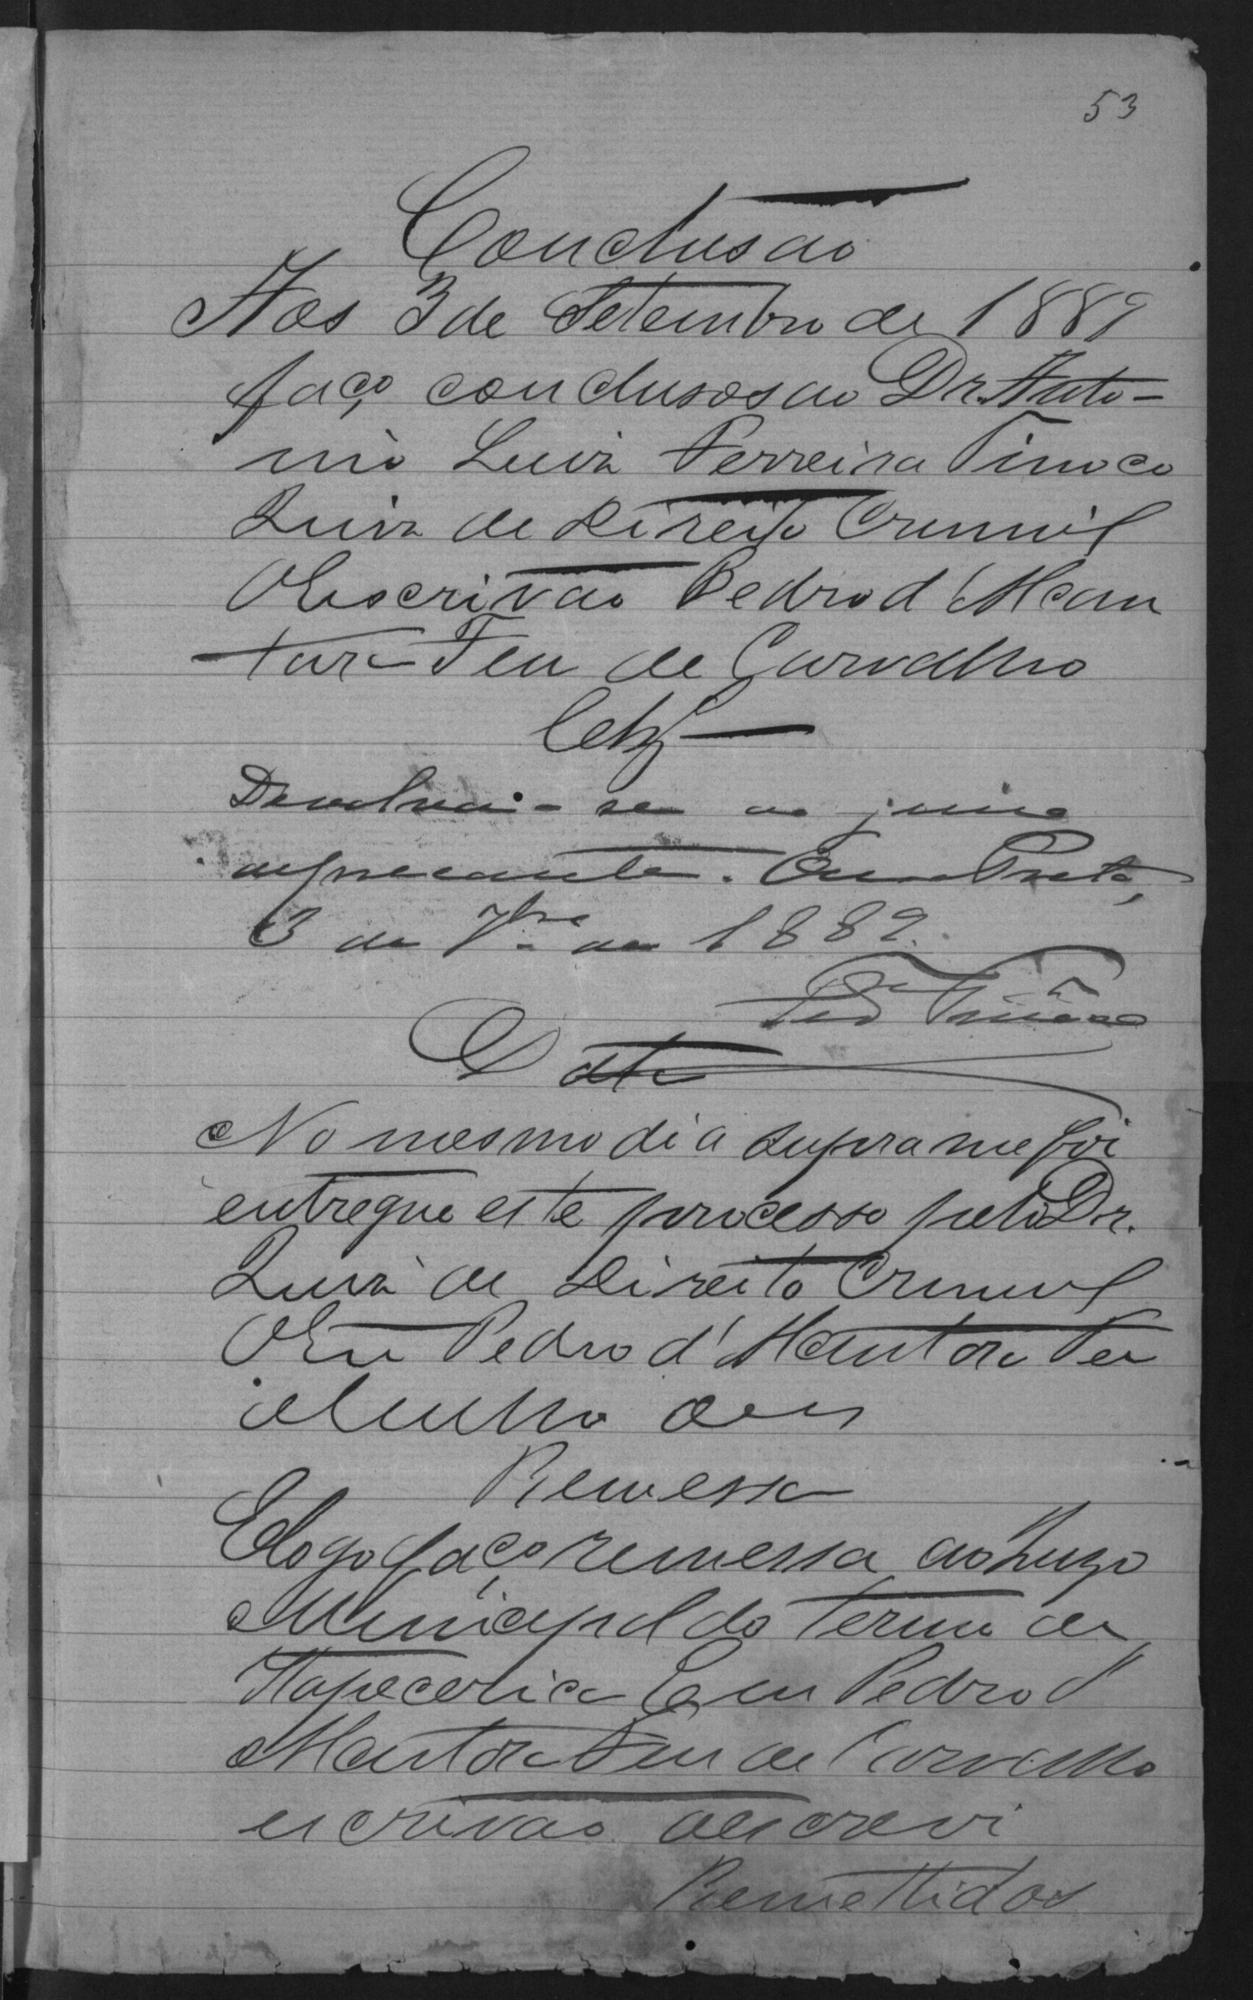 53
Conclusão
Aos 3 de Setembro de 1889
faço conclusos ao Dr. Anto-
nio Luiz Ferreira Tinoco
Juiz de Direito Crimil
O Escrivão Pedro d'Alcan
tara Feu de Carvalho
Clsº
Devolva-se ao juizo
deprecante. Ouro Preto,
3 de 7bro de 1889.
Tinôco
Data
No mesmo dia supra me foi
entregue este processo pelo Dr.
Juiz de Direito Crimil
Eu Pedro d'Alcantara Feu
Remessa
E logo faço remessa ao Juizo
Municipal do termo de
Itapecerica Eu Pedro d'
Alcantara Feu de Carvalho
escrivão o escrevi
Remettidos